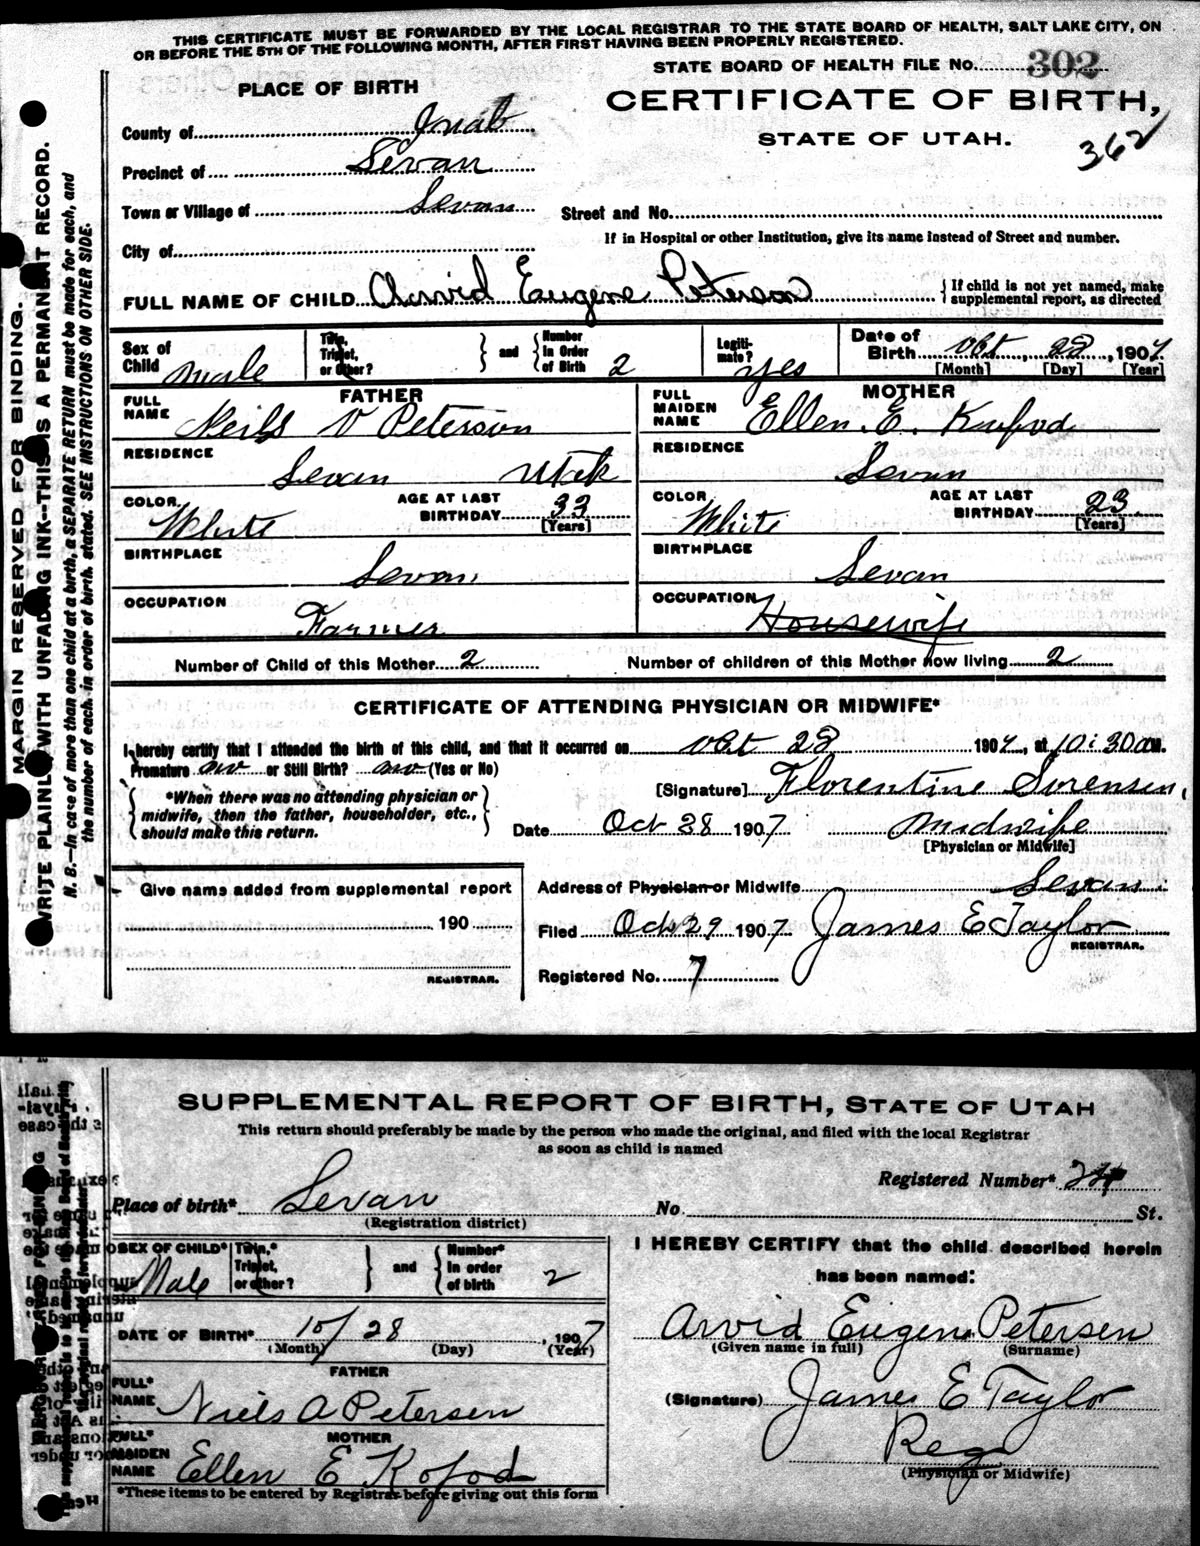 THIS CERTIFICATE MUST BE FORWARDED BY THE LOCAL REGISTRAR TO THE STATE BOARD OF HEALTH, SALT LAKE CITY, ON
OR BEFORE THE 5TH OF THE FOLLOWING MONTH, AFTER FIRST HAVING BEEN PROPERLY REGISTERED.
STATE BOARD OF HEALTH FILE NO. 302
PLACE OF BIRTH
CERTIFICATE OF BIRTH,
STATE OF UTAH.
362
County of Juab
Precinct of Levan
Town or Village of Levan
Street and No.
City of
If in Hospital or other Institution, give its name instead of Street and number.
FULL NAME OF CHILD Arvid Eugene Peterson
{ If child is not yet named, make
supplemental report, as directed
Sex of Child Male
Twin, Triplet, or Other? } and { Number In Order of Birth 2
Legitimate? yes
Date of Birth Oct, 28, 1907
[Month] [Day] [Year]
FATHER
FULL NAME Neils V Peterson
RESIDENCE Levan Utah
COLOR White AGE AT LAST BIRTHDAY 33 [Years]
BIRTHPLACE Levan
OCCUPATION Farmer
MOTHER
FULL MAIDEN NAME Ellen. E. Kofod
RESIDENCE Levan
COLOR White AGE AT LAST BIRTHDAY 23 [Years]
BIRTHPLACE Levan
OCCUPATION Housewife
Number of Child of this Mother 2 Number of children of this Mother now living 2
CERTIFICATE OF ATTENDING PHYSICIAN OR MIDWIFE*
I hereby certify that I attended the birth of this child, and that it occurred on Oct 28 1907, at 10:30 am.
Premature no or Still Birth? no (Yes or No)
{ *When there was no attending physician or
midwife, then the father, householder, etc.,
should make this return. }
[Signature] Florentine Sorensen,
Date Oct 28 1907 Midwife
[Physician or Midwife]
Give name added from supplemental report
190
REGISTRAR.
Address of Physician or Midwife Levan
Filed Oct 29 1907 James E Taylor
REGISTRAR.
Registered No. 7
MARGIN RESERVED FOR BINDING.
WRITE PLAINLY WITH UNFADING INK—THIS IS A PERMANENT RECORD.
N. B.—In case of more than one child at a birth, a SEPARATE RETURN must be made for each, and
the number of each, in order of birth, stated. SEE INSTRUCTIONS ON OTHER SIDE.
SUPPLEMENTAL REPORT OF BIRTH, STATE OF UTAH
This return should preferably be made by the person who made the original, and filed with the local Registrar
as soon as child is named
Registered Number*
Place of birth* Levan No. St.
(Registration district)
SEX OF CHILD* Male
Twin,* Triplet, or other? } and { Number* In order of birth 2
DATE OF BIRTH* 10/28, 1907
(Month) (Day) (Year)
FATHER
FULL* NAME Niels A Petersen
MOTHER
FULL* MAIDEN NAME Ellen E Kofod
*These items to be entered by Registrar before giving out this form
I HEREBY CERTIFY that the child described herein
has been named:
Arvid Eugene Petersen
(Given name in full) (Surname)
(Signature) James E Taylor
Reg
(Physician or Midwife)